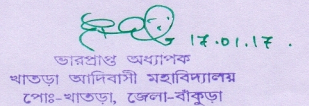 17.01.17.
ভারপ্রাপ্ত অধ্যাপক
খাতড়া আদিবাসী মহাবিদ্যালয়
পোঃ-খাতড়া, জেলা-বাঁকুড়া